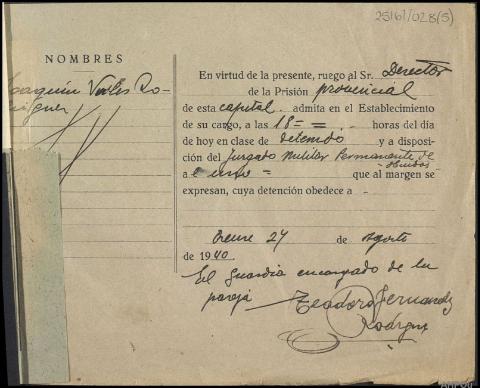 25161/028(5)
NOMBRES
Joaquín Valés Ro-
driguez
En virtud de la presente, ruego al Sr. Director
de la Prisión provincial
de esta capital admita en el Establecimiento
de su cargo, a las 18 = = horas del día
de hoy en clase de detenido y a disposi-
ción del Juzgado Militar Permanente de
Orense
a el = que al margen se
expresan, cuya detención obedece a -
Orense 27 de Agosto
de 1940.
El Guardia encargado de la
pareja
Teodoro Fernandez
Rodrigue